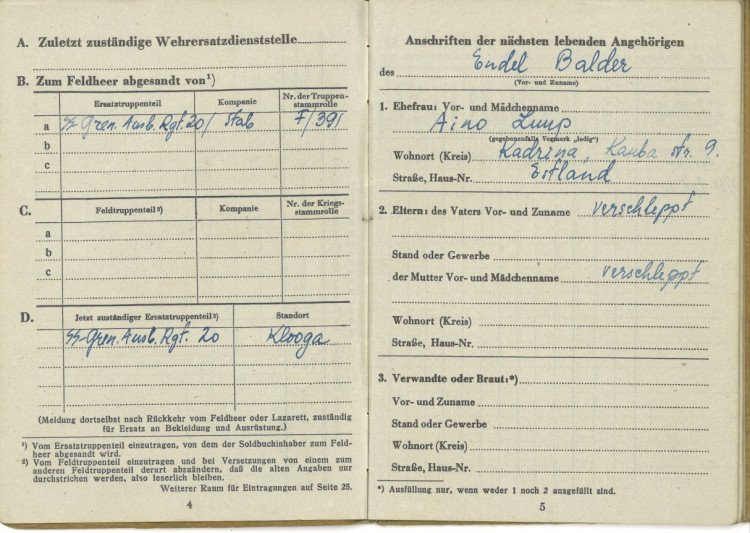 A. Zuletzt zuständige Wehrersatzdienststelle
B. Zum Feldheer abgesandt von¹)
Ersatztruppenteil Kompanie Nr. der Truppen-
stammrolle
a SS-Gren. Ausb. Rgt. 20/ Stab F/391
b
c
C. Feldtruppenteil²) Kompanie Nr. der Kriegs-
stammrolle
a
b
c
D. Jetzt zuständiger Ersatztruppenteil²) Standort
SS-Gren. Ausb. Rgt. 20 Klooga
(Meldung dortselbst nach Rückkehr vom Feldheer oder Lazarett, zuständig
für Ersatz an Bekleidung und Ausrüstung.)
¹) Vom Ersatztruppenteil einzutragen, von dem der Soldbuchinhaber zum Feld-
heer abgesandt wird.
²) Vom Feldtruppenteil einzutragen und bei Versetzungen von einem zum
anderen Feldtruppenteil derart abzuändern, daß die alten Angaben nur
durchstrichen werden, also leserlich bleiben.
Weiterer Raum für Eintragungen auf Seite 25.
4
Anschriften der nächsten lebenden Angehörigen
des Endel Balder
(Vor- und Zuname)
1. Ehefrau: Vor- und Mädchenname
Aino Luup
(gegebenenfalls Vermerk „ledig")
Wohnort (Kreis) Kadrina, Kauba str. 9.
Straße, Haus-Nr. Estland
2. Eltern: des Vaters Vor- und Zuname verschleppt
Stand oder Gewerbe
der Mutter Vor- und Mädchenname verschleppt
Wohnort (Kreis)
Straße, Haus-Nr.
3. Verwandte oder Braut:*)
Vor- und Zuname
Stand oder Gewerbe
Wohnort (Kreis)
Straße, Haus-Nr.
*) Ausfüllung nur, wenn weder 1 noch 2 ausgefüllt sind.
5